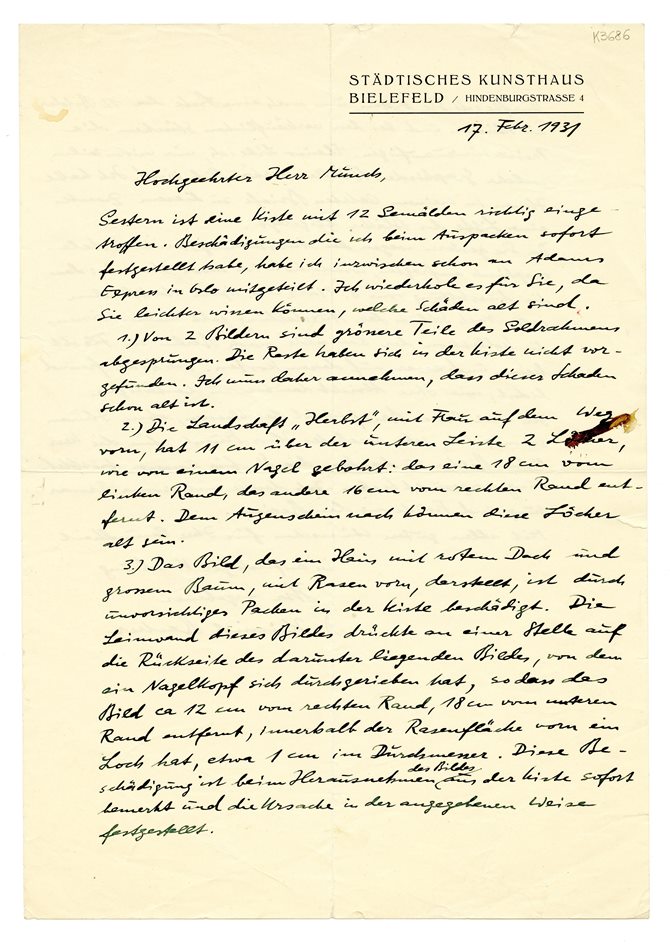 K3686
STÄDTISCHES KUNSTHAUS
BIELEFELD / HINDENBURGSTRASSE 4
17. Febr. 1931
Hochgeehrter Herr Munch,
Gestern ist eine Kiste mit 12 Gemälden richtig einge-
troffen. Beschädigungen die ich beim Auspacken sofort
festgestellt habe, habe ich inzwischen schon an Adams
Express in Oslo mitgeteilt. Ich wiederhole es für Sie, da
Sie leichter wissen können, welche Schäden alt sind.
1.) Von 2 Bildern sind grössere Teile des Goldrahmens
abgesprungen. Die Reste haben sich in der Kiste nicht vor-
gefunden. Ich muss daher annehmen, dass dieser Schaden
schon alt ist.
2.) Die Landschaft „Herbst", mit Frau auf dem Weg
vorn, hat 11 cm über der unteren Leiste 2 Löcher,
wie von einem Nagel gebohrt: das eine 18 cm vom
linken Rand, das andere 16 cm vom rechten Rand ent-
fernt. Dem Augenschein nach können diese Löcher
alt sein.
3.) Das Bild, das ein Haus mit rotem Dach und
grossem Baum, mit Rasen vorn, darstellt, ist durch
unvorsichtiges Packen in der Kiste beschädigt. Die
Leinwand dieses Bildes drückte an einer Stelle auf
die Rückseite des darunter liegenden Bildes, von dem
ein Nagelkopf sich durchgerieben hat, sodass das
Bild ca 12 cm vom rechten Rand, 18 cm vom unteren
Rand entfernt, innerhalb der Rasenfläche vorn ein
Loch hat, etwa 1 cm im Durchmesser. Diese Be-
schädigung ist beim Herausnehmen des Bildes aus der Kiste sofort
bemerkt und die Ursache in der angegebenen Weise
festgestellt.